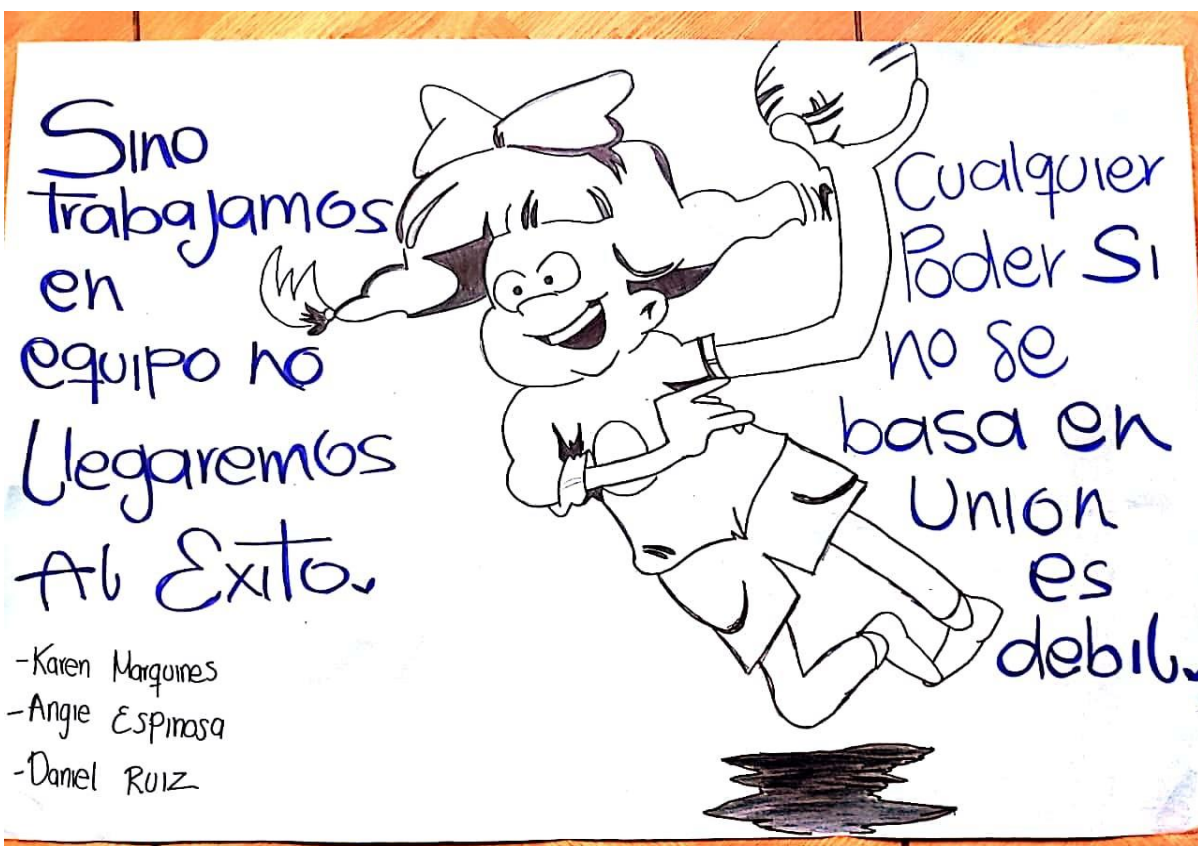 Sino
trabajamos
en
equipo no
llegaremos
Al Exito.
-Karen Marquines
-Angie Espinosa
-Daniel RUIZ
Cualquier
Poder Si
no se
basa en
Union
es
debil.